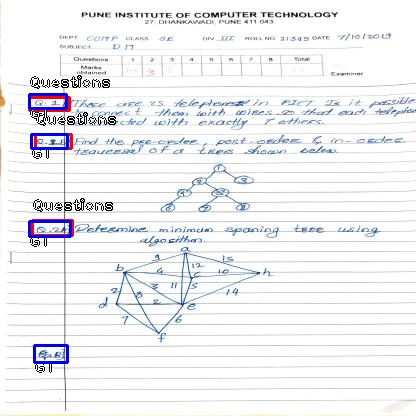 PUNE INSTITUTE OF COMPUTER TECHNOLOGY
27, DHANKAWADI, PUNE 411 043.
DEPT COMP CLASS SE DIV III ROLL NO. 21345 DATE 7/10/2019
SUBJECT DM
Questions 1 2 3 4 5 6 7 8 Total
Marks obtained
Examiner
Questions
Q.1 There are 25 telephones in PICT. Is it possible
connect them with wires so that each telephone
Questions
with exactly 7 others.
GT
Find the pre-order, post-order & in-order
traversal of a tree shown below.
1
Questions
Q.2A Determine minimum spaning tree using
GT
algorithm.
a
9 12 15
b 4 c 10 h
2 3 11 5 14
8 2
d e
7 6
f
GT